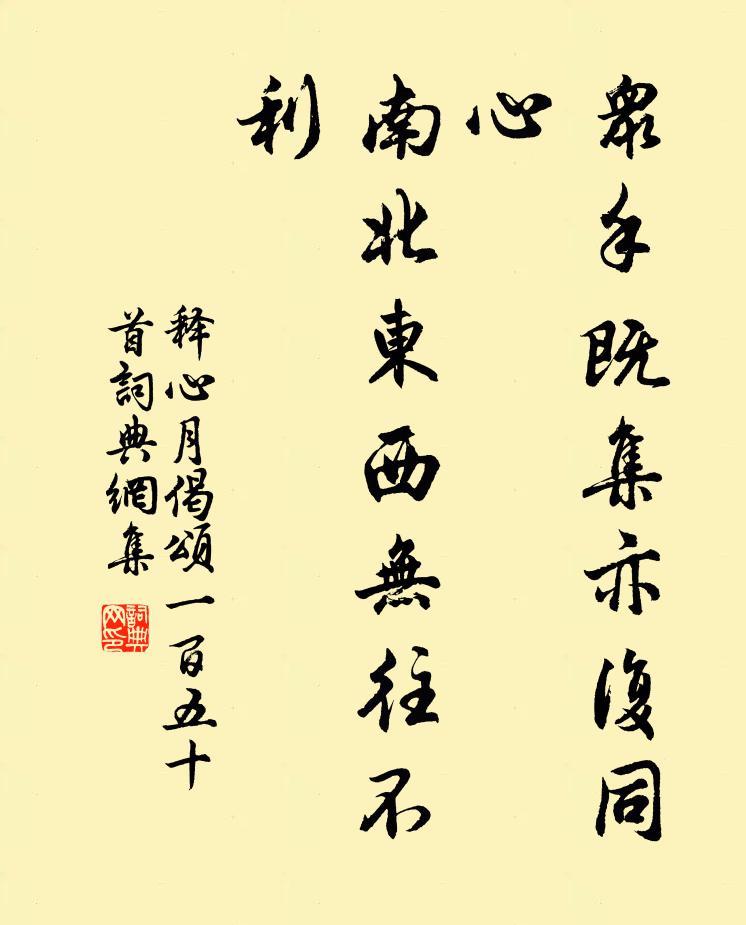 眾手既集亦復同
心
南北東西無往不
利
释心月偈頌一百五十
首詞典網集
詞典網印